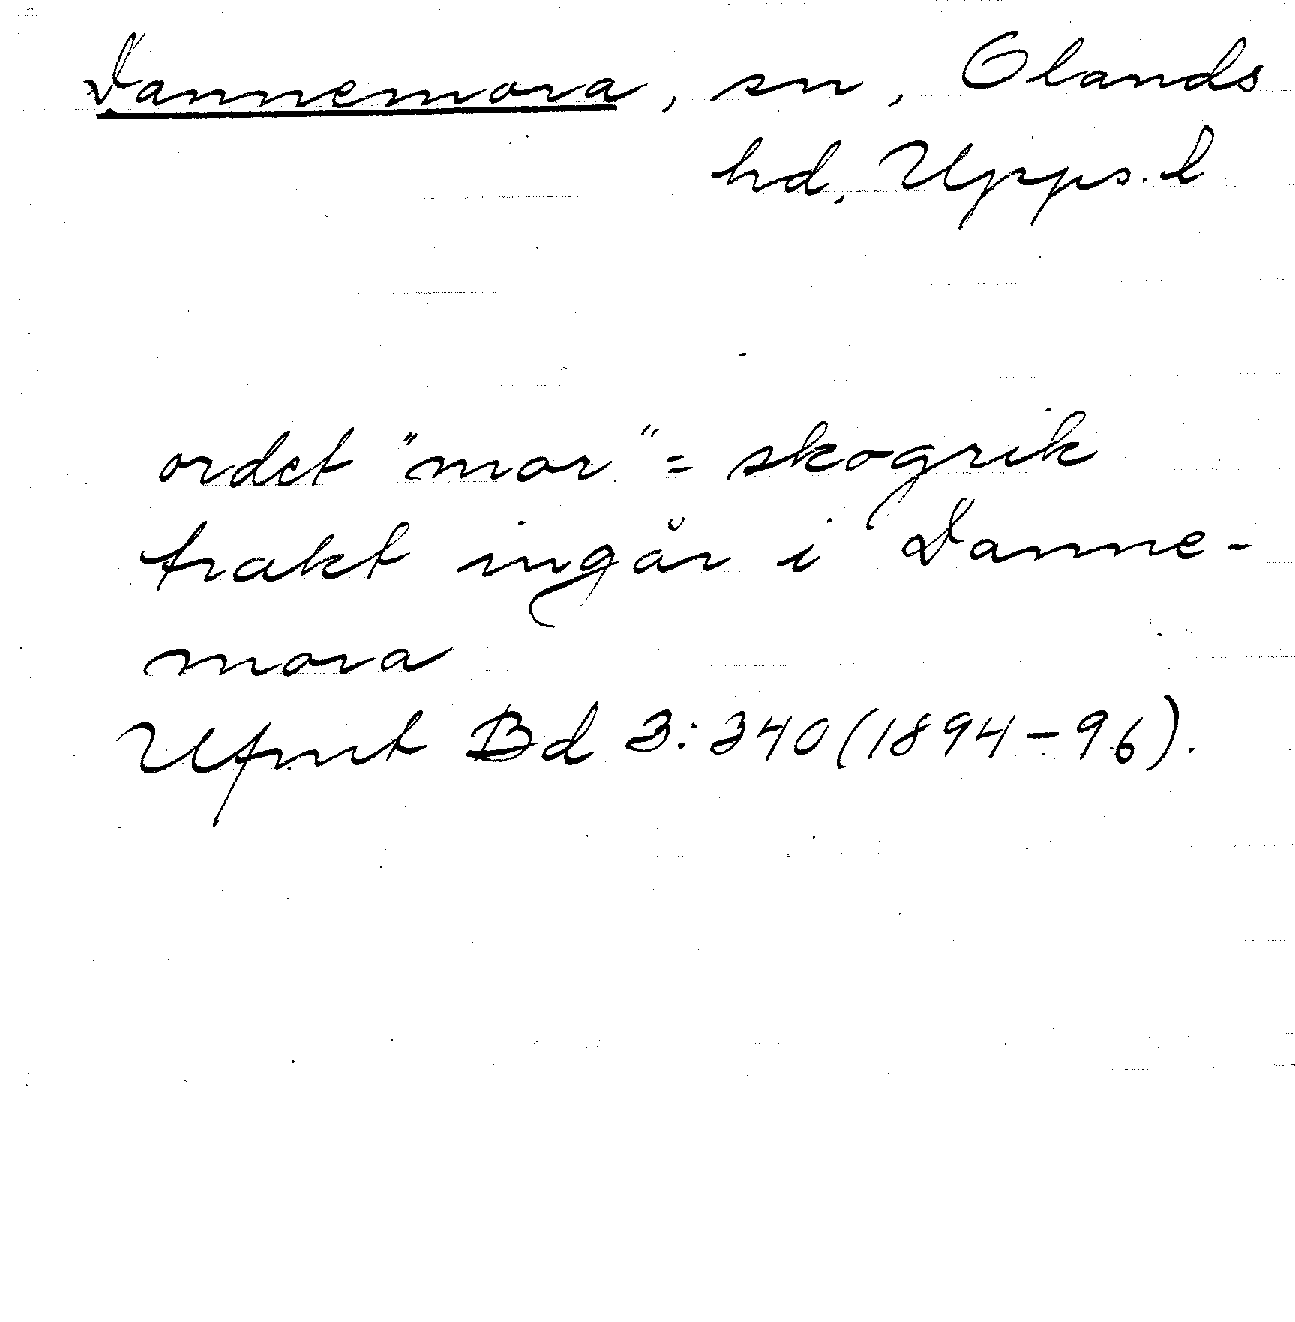 Dannemora, sn, Olands
hd, Upps. l
ordet "mor" = skogrik
trakt ingår i Danne-
mora
Ufmt Bd 3:340 (1894-96).